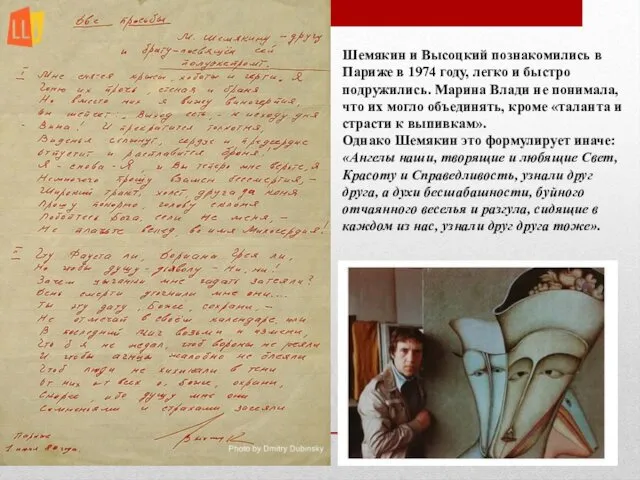 LL
Две просьбы
М. Шемякину – другу
и брату – посвящён сей
полуэкспромт.
I Мне снятся крысы, хоботы и черти. Я
Гоню их прочь, стеная и браня
Но вместо них я вижу виночерпия,
Он шепчет: Выход есть – к исходу дня
– Вина! И прекратится толкотня,
Виденья схлынут, сердце и предсердие
отпустит и расплавится броня!
Я – снова – Я, и Вы теперь мне верьте, Я
Немногого прошу взамен бессмертия, –
Широкий тракт, холст, друга да коня
Прошу покорно, голову склоня
Побойтесь Бога, если не меня, –
Не плачьте вслед, во имя Милосердия!
II
Чту Фауста ли, Дориана Грея ли,
Но чтобы душу – дьяволу – Ни, ни!
Зачем цыганки мне гадать затеяли?
День смерти уточнили мне они...
Ты эту дату, Боже, сохрани, –
Не отмечай в своём календаре, или
В последний миг возьми и измени,
Чтоб я не ждал, чтоб вороны не реяли
И чтобы агнцы жалобно не блеяли
Чтоб люди не хихикали в тени
От них от всех, о, Боже, охрани,
Скорее, ибо душу мне они
Сомненьями и страхами засеяли
Париж
1 июня 80 года.
Photo by Dmitry Dubinsky
Шемякин и Высоцкий познакомились в
Париже в 1974 году, легко и быстро
подружились. Марина Влади не понимала,
что их могло объединять, кроме «таланта и
страсти к выпивкам».
Однако Шемякин это формулирует иначе:
«Ангелы наши, творящие и любящие Свет,
Красоту и Справедливость, узнали друг
друга, а духи бесшабашности, буйного
отчаянного веселья и разгула, сидящие в
каждом из нас, узнали друг друга тоже».